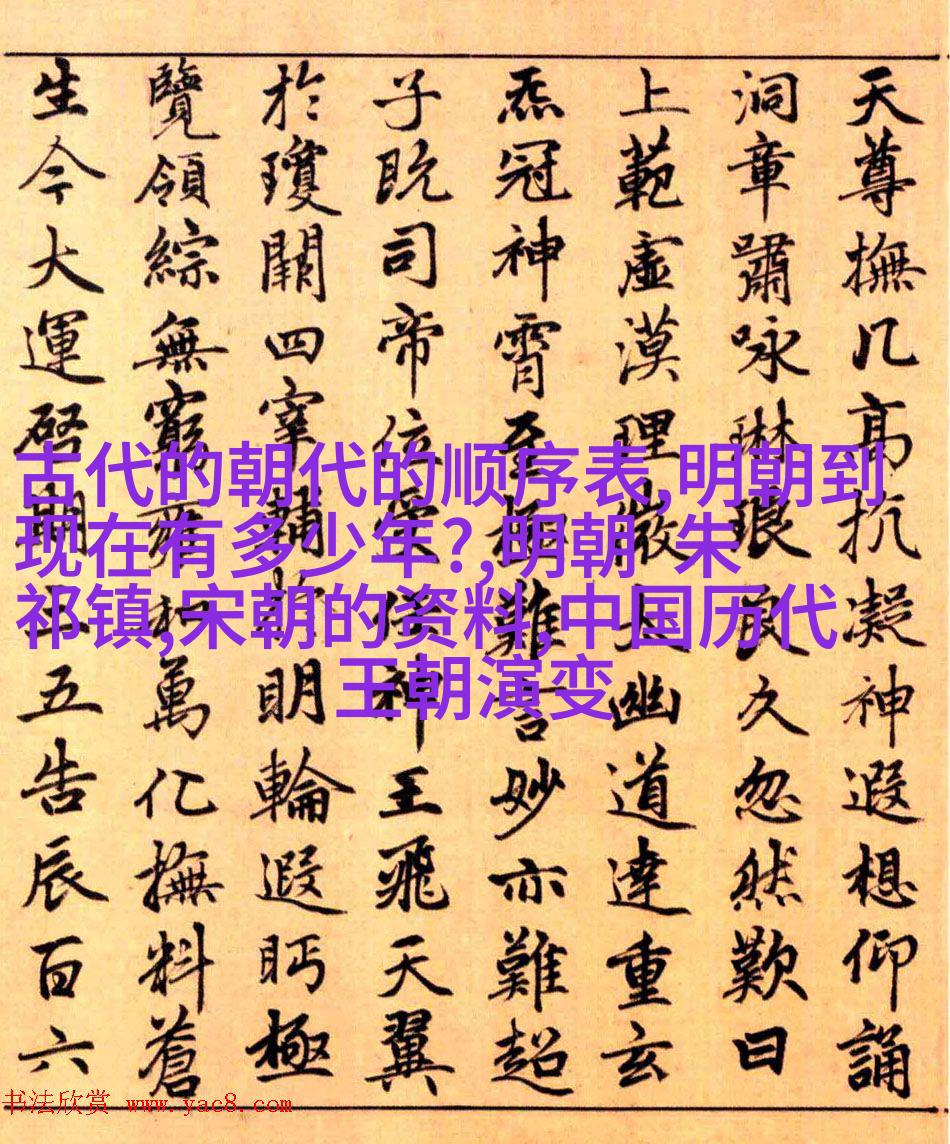 天尊撫几高抗凝神遐想仰誦
洞章嘯咏琳琅良久忽然歎曰
上範虛漠理微大幽道達重玄
炁冠神霄至極難言妙亦難超
子既司帝位神王飛天翼
於瓊闕四宰輔明輪遐眄極
覽領綜無窮雍和萬化撫料蒼
生今大運啓期三五告辰百六
古代的朝代的顺序表,明朝到
现在有多少年?,明朝 朱
祁镇,宋朝的资料,中国历代
王朝演变
书法欣赏 www.yac8.com